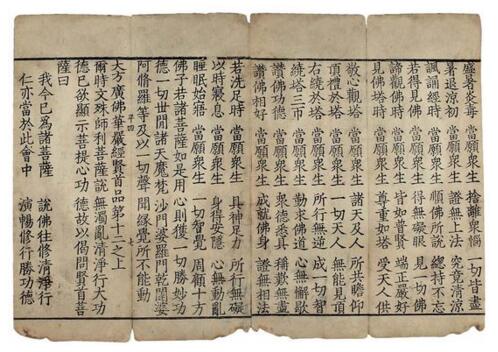 盛暑炎毒　當願衆生　捨離衆惱　一切皆盡
暑退涼初　當願衆生　證無上法　究竟清涼
諷誦經時　當願衆生　順佛所說　總持不忘
若得見佛　當願衆生　得無礙眼　見一切佛
諦觀佛時　當願衆生　皆如普賢　端正嚴好
見佛塔時　當願衆生　尊重如塔　受天人供
敬心觀塔　當願衆生　諸天及人　所共瞻仰
頂禮於塔　當願衆生　一切天人　無能見頂
右繞於塔　當願衆生　所行無逆　成一切智
繞塔三帀　當願衆生　勤求佛道　心無懈歇
讚佛功德　當願衆生　衆德悉具　稱歎無盡
讚佛相好　當願衆生　成就佛身　證無相法
若洗足時　當願衆生　具神足力　所行無礙
以時寢息　當願衆生　身得安隱　心無動亂
睡眠始寤　當願衆生　一切智覺　周顧十方
佛子若諸菩薩如是用心則獲一切勝妙功
德一切世閒諸天魔梵沙門婆羅門乾闥婆
阿脩羅等及以一切聲聞緣覺所不能動
平四　七
大方廣佛華嚴經賢首品第十二之上
爾時文殊師利菩薩說無濁亂清淨行大功
德已欲顯示菩提心功德故以偈問賢首菩
薩曰
我今已爲諸菩薩　說佛往修清淨行
仁亦當於此會中　演暢修行勝功德